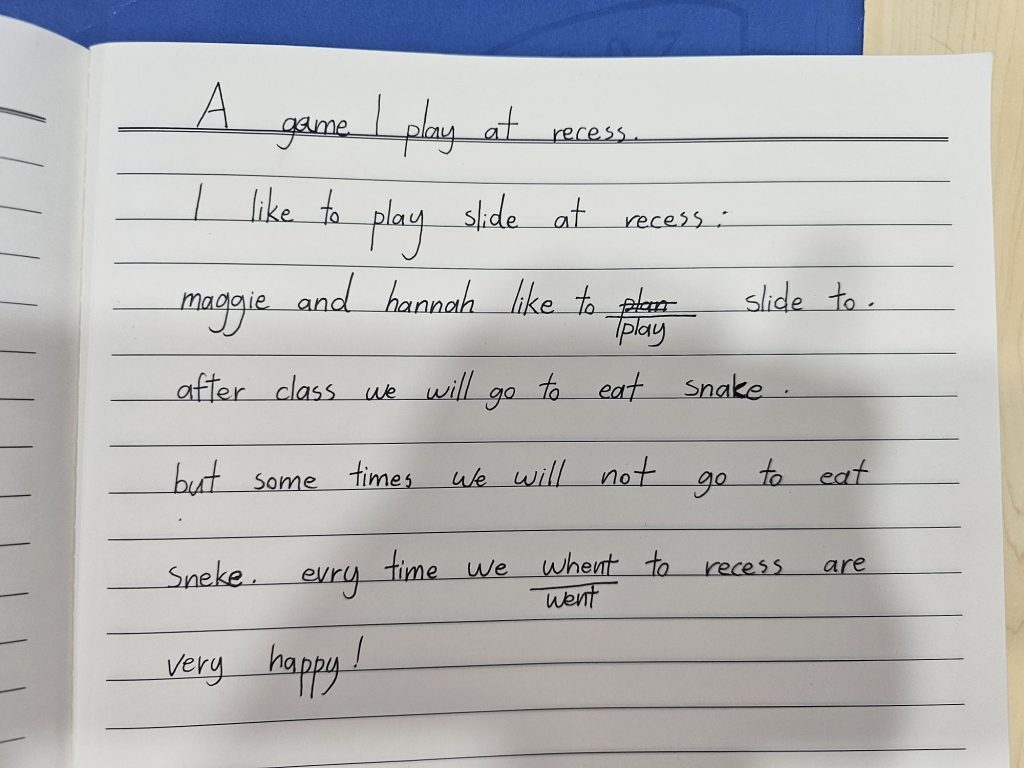 A game I play at recess.
I like to play slide at recess:
maggie and hannah like to plan slide to.
play
after class we will go to eat snake.
but some times we will not go to eat
sneke. evry time we whent to recess are
went
very happy!